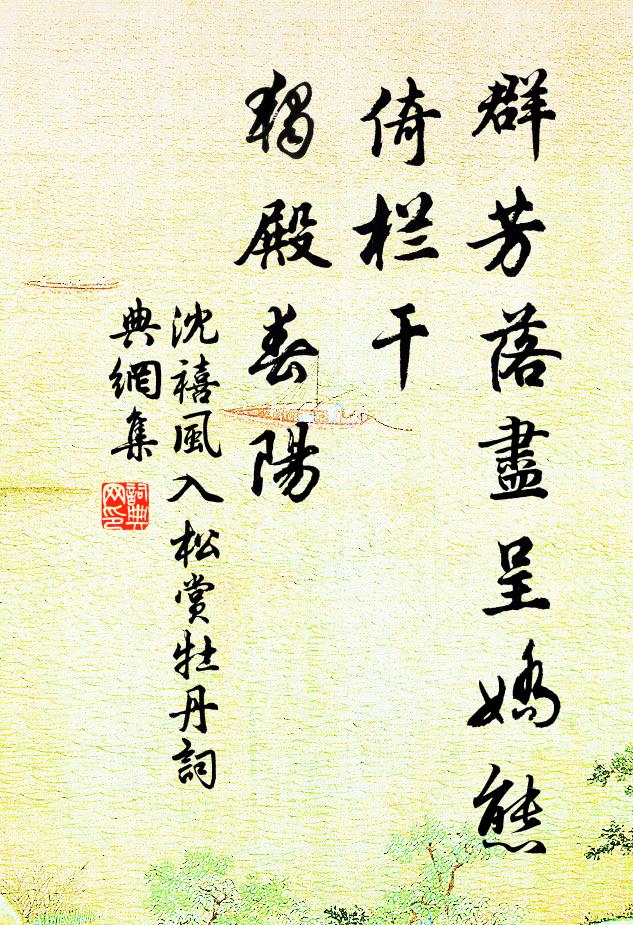 群芳落盡呈嬌態
倚栏干
獨殿春陽
沈禧風入松賞牡丹詞
典網集
詞典
网印